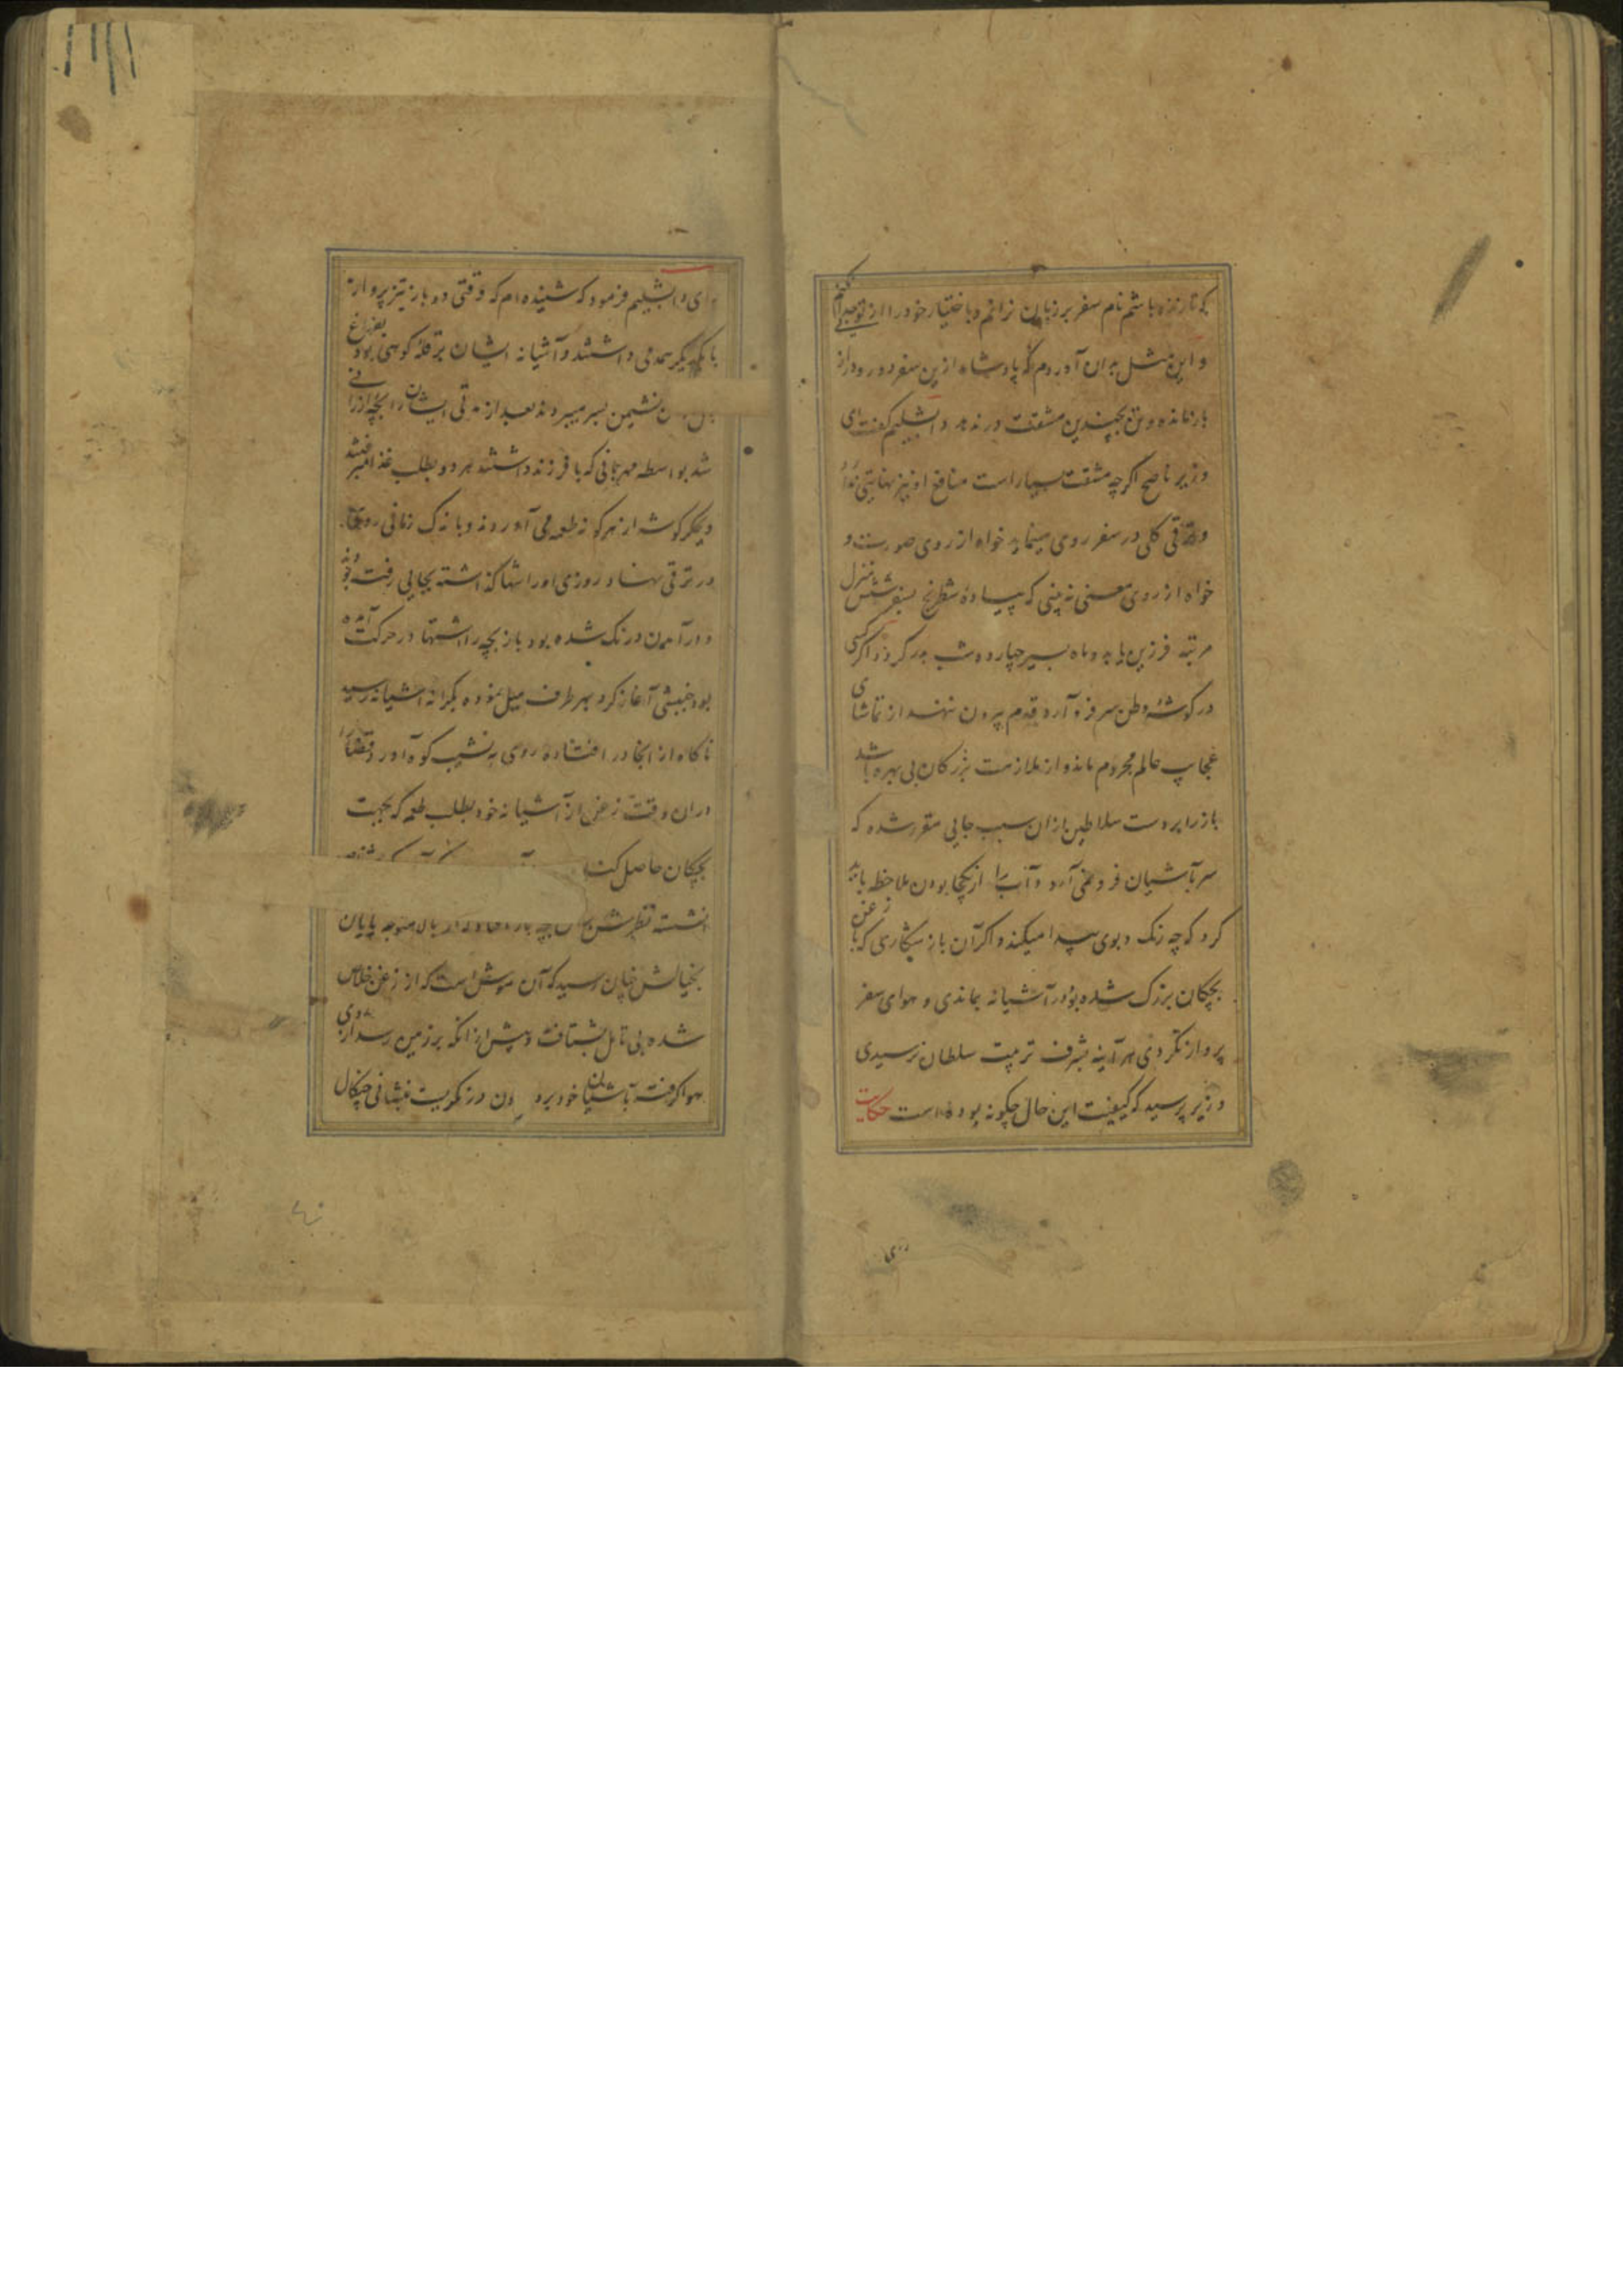 که تا زنده باشم نام سفر بر زبان نرانم و باختیار خود را از
و این مثل بدان آوردم که پادشاه ازین سفر دور و دراز
باز مانده و تن بچندین مشقت در ندهد دابشلیم گفت ای
وزیر ناصح اگر چه مشقت بسیار است منافع او نیز نهایتی ندارد
و ترقی کلی در سفر روی مینماید خواه از روی صورت و
خواه از روی معنی نه بینی که پیادهٔ شطرنج بسفر شش منزل
مرتبه فرزین یابد و ماه بسیر چهارده شب بدر کردد و اگر کسی
در کوشهٔ وطن سر فرو آرد و قدم بیرون ننهد از تماشای
عجایب عالم محروم ماند و از ملازمت بزرگان بی بهره باشد
باز را بر دست سلاطین بازان سبب جایی مقرر شده که
سر بآشیان فرو نمی آرد و آب را از یکجا بودن ملاحظه باید
کرد که چه رنک و بوی پیدا میکند و اگر آن باز شکاری که با زغن
بچکان بزرک شده بود در آشیانه بماندی و هوای سفر
پرواز نکردی هر آینه بشرف تربیت سلطان نرسیدی
وزیر پرسید که کیفیت این حال چگونه بوده است حکایت
رای دابشلیم فرمود که شنیده ام که وقتی دو باز تیز پرواز
با یکدیگر همدمی داشتند و آشیانه ایشان بر قلهٔ کوهی بود بفراغ
نشیمن بسر میبردند بعد از مدتی ایشان را بچه ارزانی
شد بواسطه مهربانی که با فرزند داشتند هر دو بطلب غذا میرفتند
و جگر گوشه از هر گونه طعمه می آوردند و باندک زمانی روی
در ترقی نهاد روزی او را تنها گذاشته بجایی رفته بودند
در آمدن درنک شده بود باز بچه را اشتها در حرکت آمده
بود جنبشی آغاز کرد و بهر طرف میل نموده بکرانه آشیانه رسید
ناکاه از انجا در افتاده روی به نشیب کوه آورد قضا را
دران وقت زغنی از آشیانه خود بطلب طعمه که بجهت
بچکان حاصل کند
نشسته نظرش متوجه پایان
بخیالش چنان رسید که آن موشی است که از زغن خلاص
شده بی تامل بشتافت و پیش از انکه بر زمین رسد از روی
هوا گرفته بآشیان خود برد چون در نگریست بنشانی چنکال